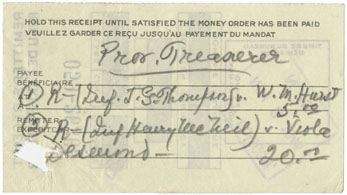 HOLD THIS RECEIPT UNTIL SATISFIED THE MONEY ORDER HAS BEEN PAID
VEUILLEZ GARDER CE REÇU JUSQU'AU PAYEMENT DU MANDAT
Prov. Treasurer
PAYEE
BÉNÉFICIAIRE
(1) R- (Inf. J. G. Thompson) v. W. M. Hurst
5.00
REMITTER
EXPÉDITEUR
(2) R- (Inf Henry MacNeil) v. Viola
Desmond - 20.00